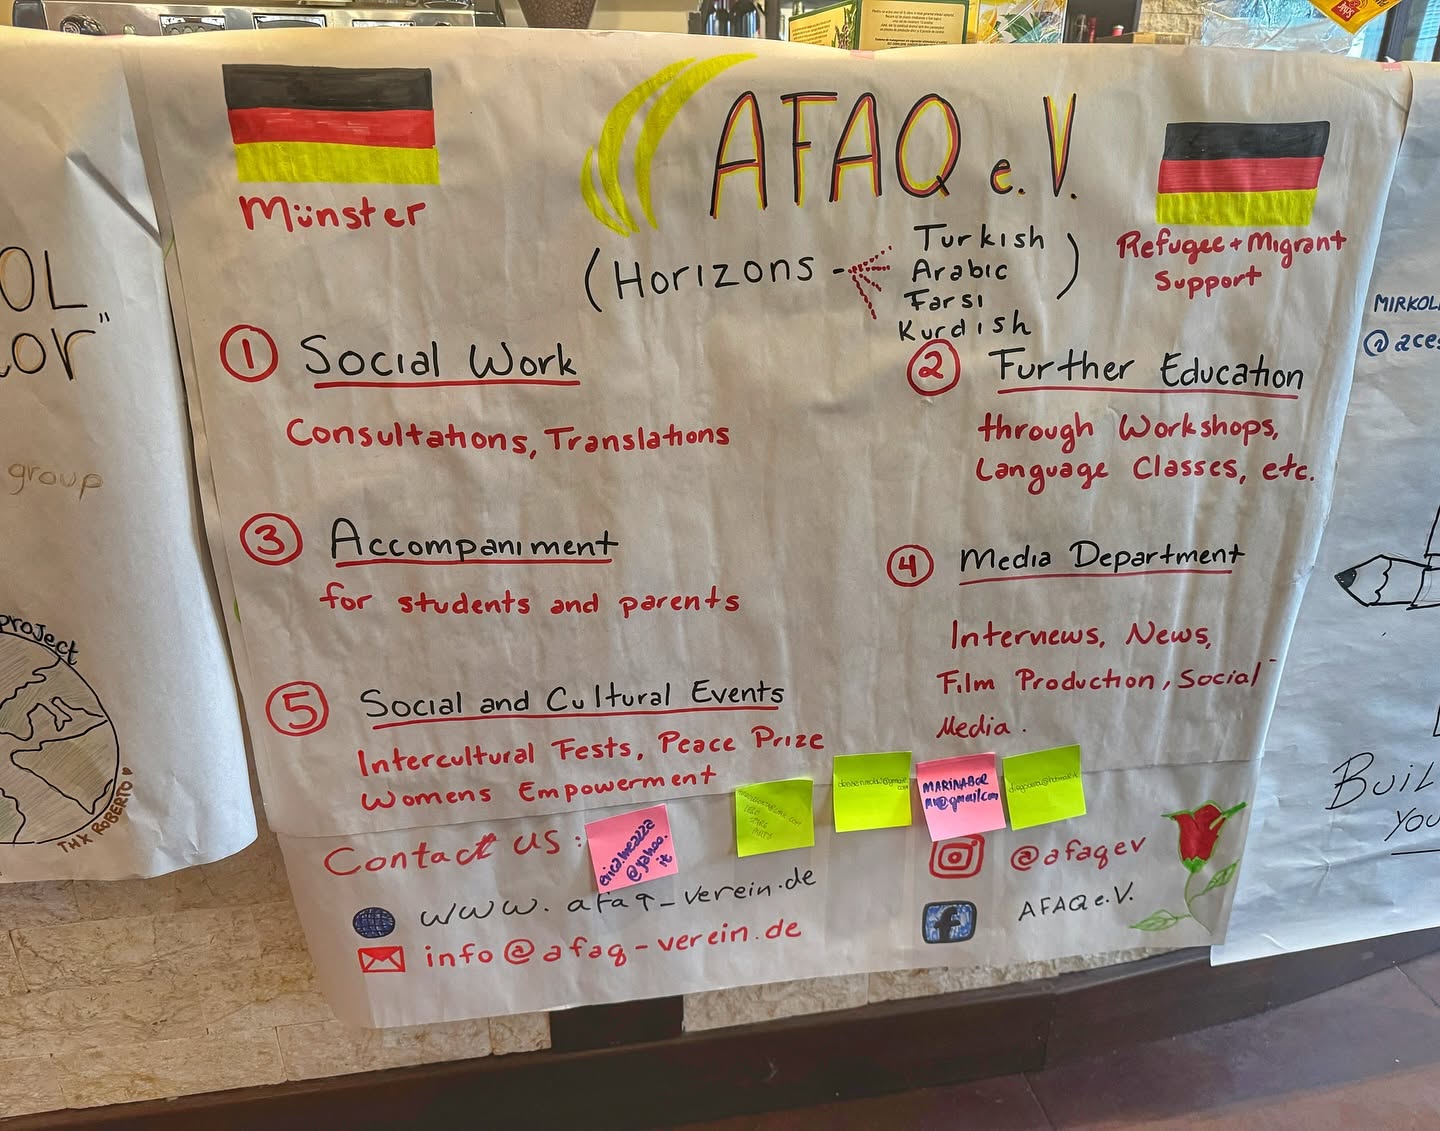 AFAQ e.V.
Münster
(Horizons - Turkish
Arabic
Farsi
Kurdish)
Refugee + Migrant
Support
① Social Work
Consultations, Translations
② Further Education
through Workshops,
Language Classes, etc.
③ Accompaniment
for students and parents
④ Media Department
Internews, News,
Film Production, Social
Media.
⑤ Social and Cultural Events
Intercultural Fests, Peace Prize
Womens Empowerment
Contact us:
www.afaq-verein.de
info@afaq-verein.de
@afaqev
AFAQ e.V.
erica.meazza
@yahoo.
it
MARINABOR
OL
or"
group
project
THX ROBERTO
@aces
BUIL
YOU